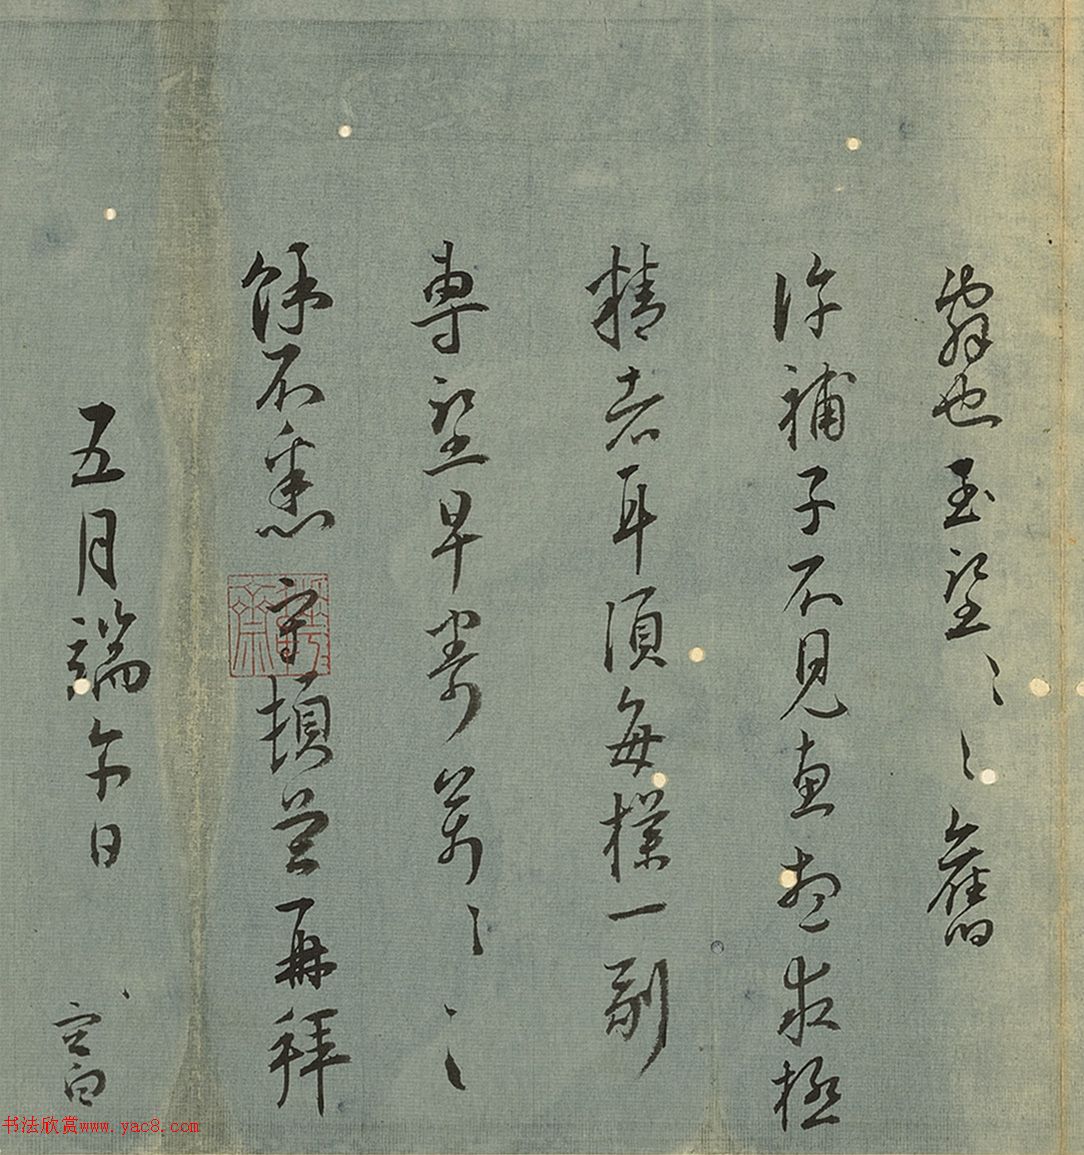 辭也至望〻〻舊
許補子不見惠想求極
精者耳須每樣一副
專望早寄萬〻〻
餘不悉 守頓首再拜
五月端午日
书法欣赏www.yac8.com